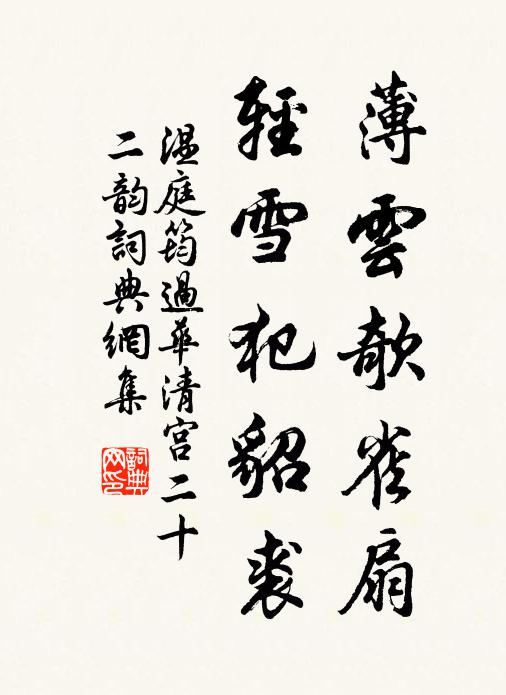 薄雲欹雀扇
輕雪犯貂裘
溫庭筠過華清宮二十
二韵詞典網集
詞典網印